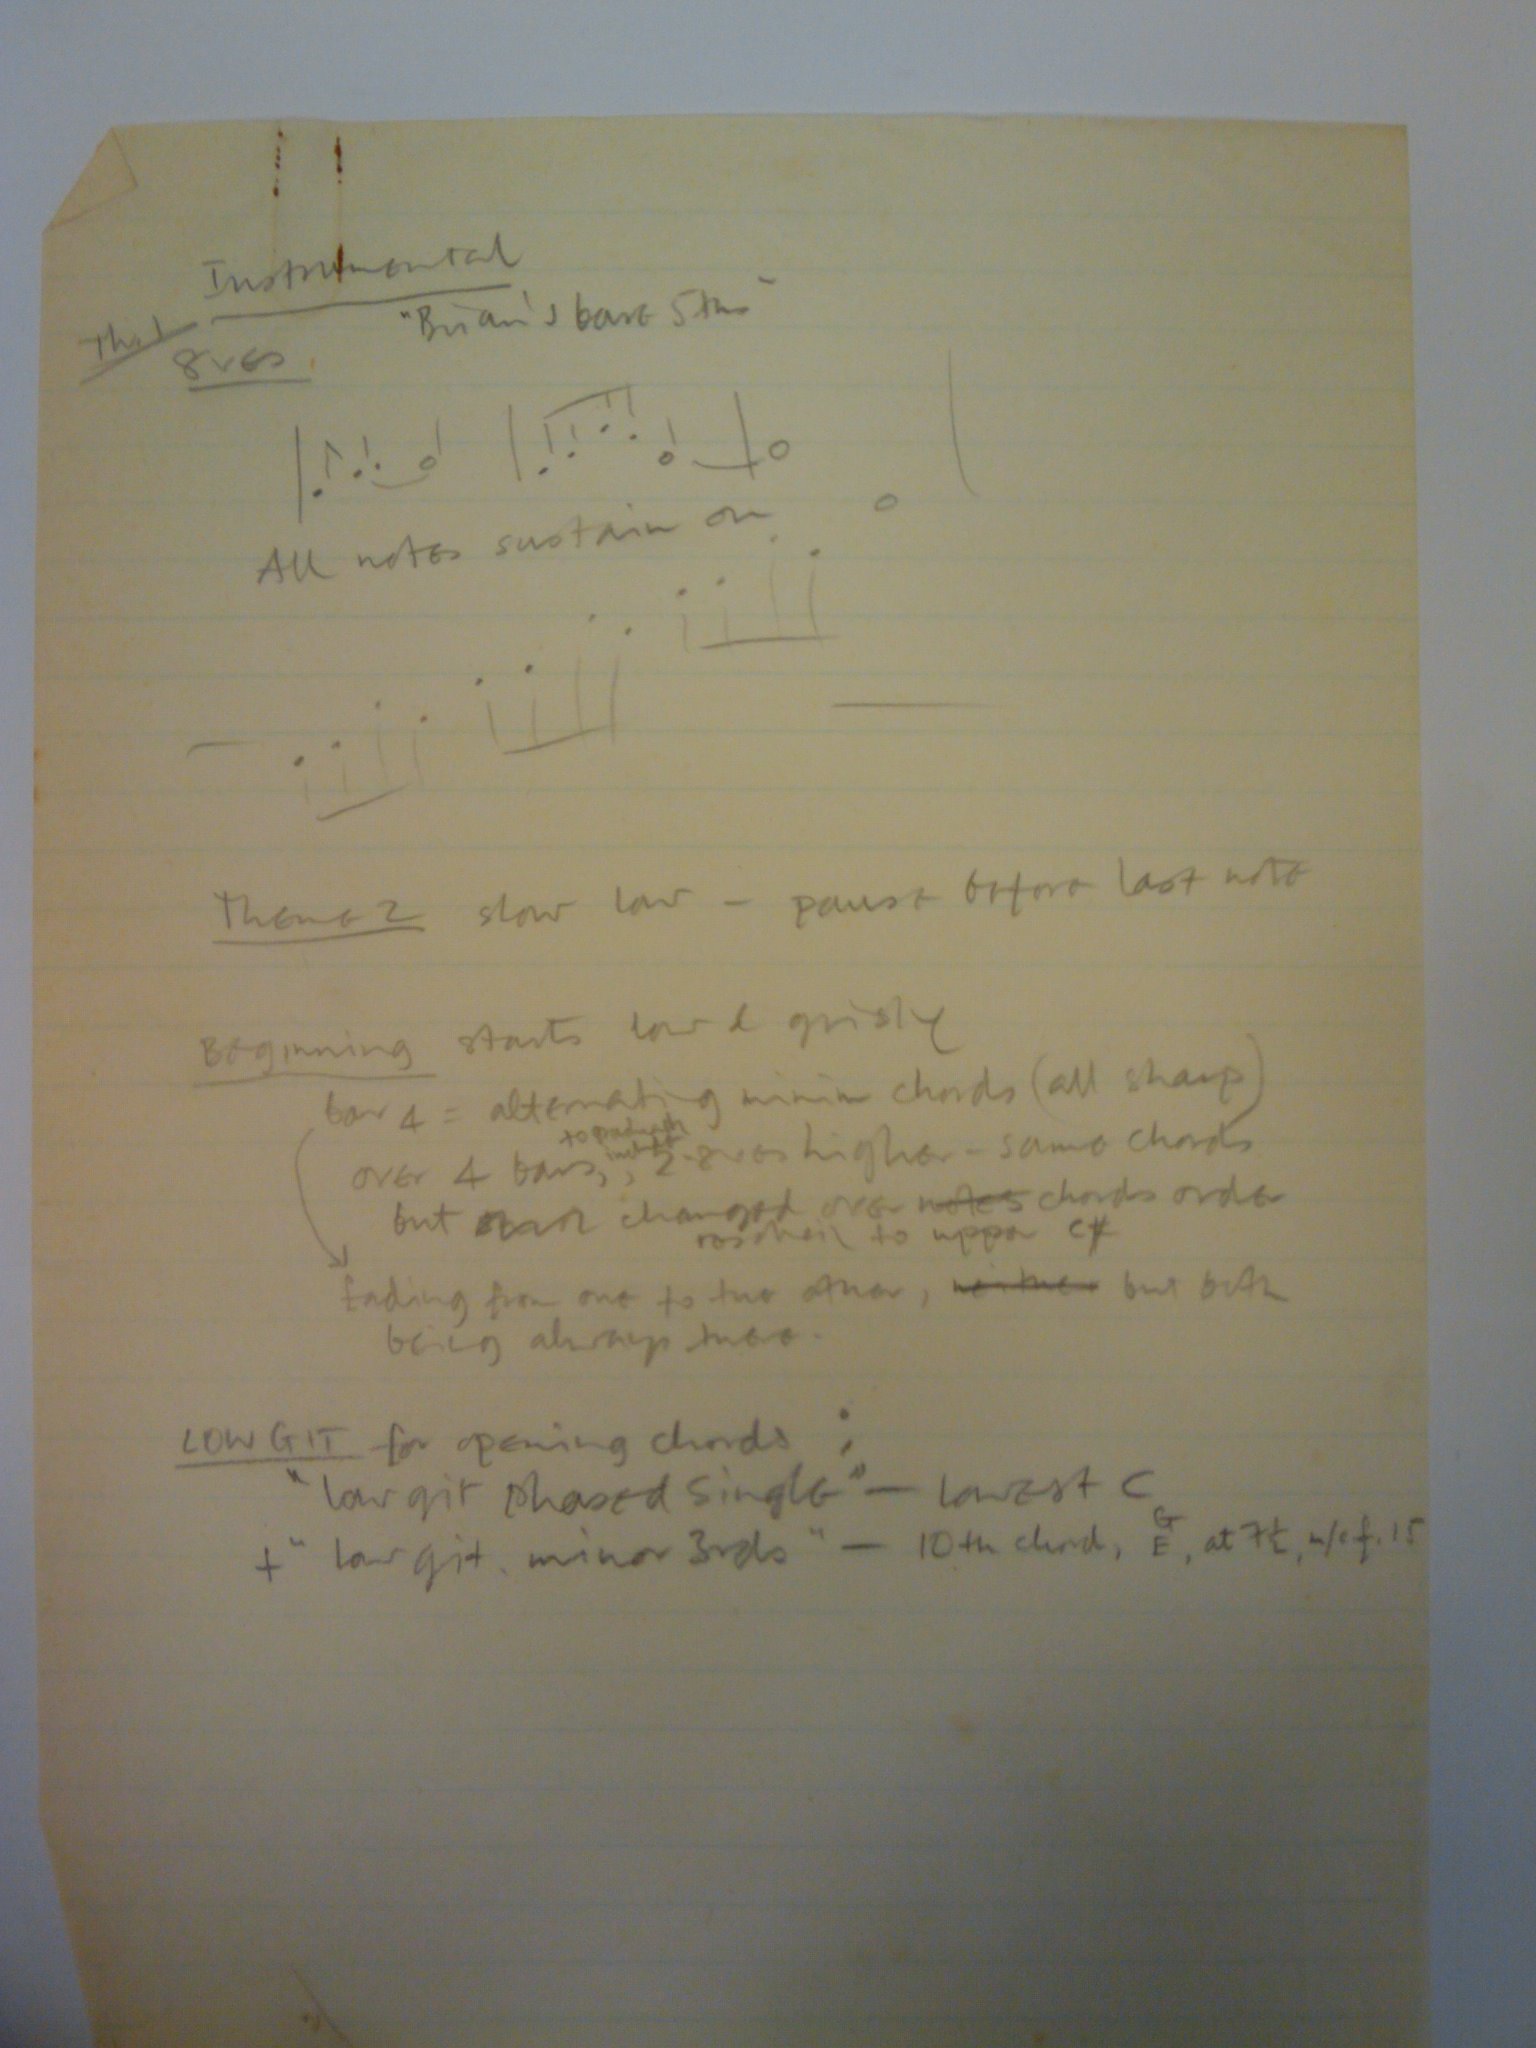 Instrumental
"Brian's base 5ths"
Th. 1
8ves
All notes sustain on
Theme 2 slow low - pause before last note
Beginning starts low & grisly
bar 4 = alternating minim chords (all sharp)
over 4 bars, 2 8ves higher - same chords
but changed over notes chords order
to upper C#
fading from one to the other, neither but both
being always there.
LOW GIT for opening chords :
"low git phased single" - lowest C
+ "low git. minor 3rds" - 10th chord, G E, at 7½, 15